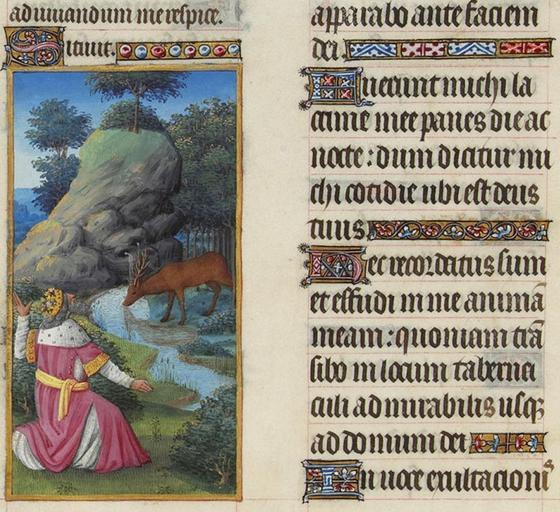 adiuuandum me respice.
Sitiuit.
apparabo ante faciem
dei
Fuerunt michi la
crime mee panes die ac
nocte : dum dicitur mi
chi cotidie ubi est deus
tuus
Hec recordatus sum
et effudi in me animā
meam : quoniam trā
sibo in locum taberna
culi admirabilis usq
ad domum dei
In uoce exultacionis